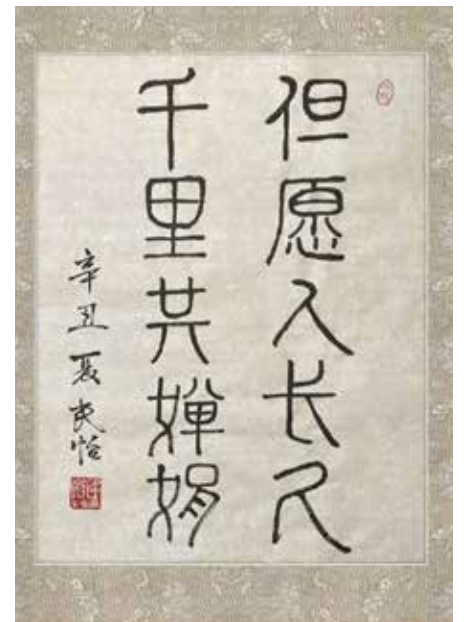 但愿人长久
千里共婵娟
辛丑 夏民怡